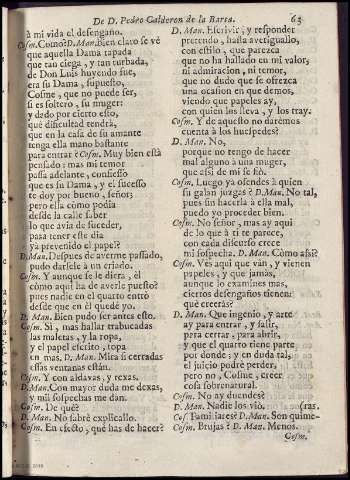 De D. Pedro Calderon de la Barca. 63
à mi vida el desengaño.
Cosm. Como? D. Man. Bien claro se vè
que aquella Dama tapada
que tan ciega, y tan turbada,
de Don Luis huyendo fue,
era su Dama, supuesto,
Cosme, que no puede ser,
si es soltero, su muger:
y dado por cierto esto,
què dificultad tendrà,
que en la casa de su amante
tenga ella mano bastante
para entrar? Cosm. Muy bien està
pensado; mas mi temor
passa adelante, confiesso
que es su Dama, y el sucesso
te doy por bueno, señor;
pero ella còmo podia
desde la calle saber
lo que avia de suceder,
para tener este dia
ya prevenido el papel?
D. Man. Despues de averme passado,
pudo darsele à un criado.
Cosm. Y aunque se le diera, èl
còmo aqui ha de averle puesto?
pues nadie en el quarto entrò
desde que en èl quedè yo.
D. Man. Bien pudo ser antes esto.
Cosm. Si, mas hallar trabucadas
las maletas, y la ropa,
y el papel escrito, topa
en mas. D. Man. Mira si cerradas
essas ventanas están.
Cosm. Y con aldavas, y rexas.
D. Man. Con mayor duda me dexas,
y mil sospechas me dan.
Cosm. De què?
D. Man. No sabrè explicallo.
Cosm. En efecto, què has de hacer?
D. Man. Escrivir, y responder
pretendo, hasta averiguallo,
con estilo, que parezca
que no ha hallado en mi valor,
ni admiracion, ni temor,
que no dudo que se ofrezca
una ocasion en que demos,
viendo que papeles ay,
con quien los lleva, y los tray.
Cosm. Y de aquesto no darèmos
cuenta à los huespedes?
D. Man. No,
porque no tengo de hacer
mal alguno à una muger,
que assi de mi se fiò.
Cosm. Luego ya ofendes à quien
su galan juzgas? D. Man. No tal,
pues sin hacerla à ella mal,
puedo yo proceder bien.
Cosm. No señor, mas ay aqui
de lo que à ti te parece,
con cada discurso crece
mi sospecha. D. Man. Còmo assi?
Cosm. Ves aqui que vàn, y vienen
papeles, y que jamàs,
aunque lo examines mas,
ciertos desengaños tienen:
què creeràs?
D. Man. Que ingenio, y arte
ay para entrar, y salir,
para cerrar, para abrir,
y que el quarto tiene parte
por donde; y en duda tal,
el juicio podrè perder,
pero no, Cosme, creer
cosa sobrenatural.
Cosm. No ay duendes?
D. Man. Nadie los viò. (ras.
Cosm. Familiares? D. Man. Son quime-
Cosm. Brujas? D. Man. Menos.
Cosm.